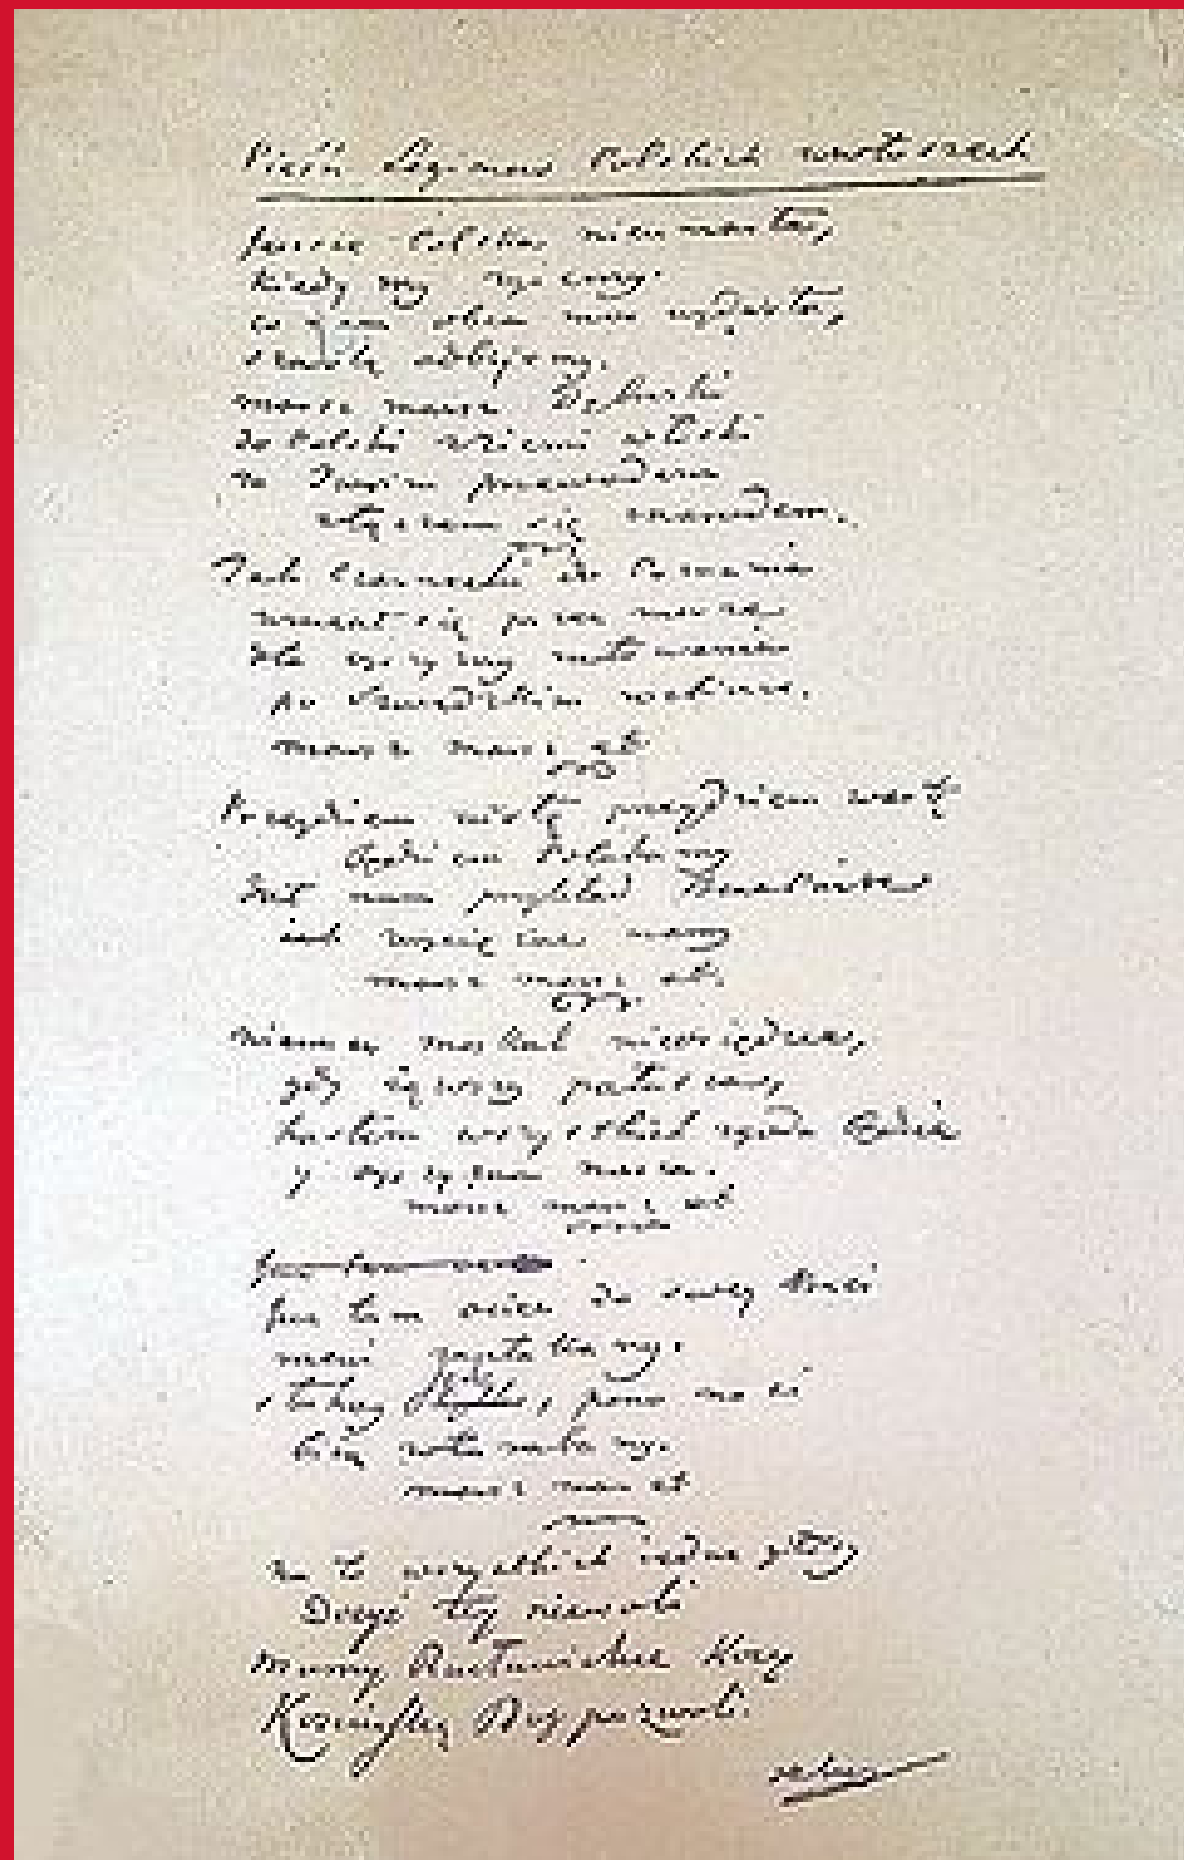 Pieśń Legionów Polskich we Włoszech
Jeszcze Polska nie umarła,
kiedy my żyiemy.
co nam obca moc wydarła,
szablą odbijemy.
marsz marsz Dąbrowski
do Polski z ziemi włoski
za Twoim przewodem
złączem się z narodem.
Jak Czarnecki do Poznania
wracał się przez morze
dla oyczyzny ratowania
po szwedzkim rozbiorze.
marsz marsz etc
Przejdziem Wisłę przejdziem Wartę
będziem Polakami
dał nam przykład Bonaparte
jak zwyciężać mamy
marsz marsz etc.
niemiec moskal nieosiędzie,
gdy iąwszy pałasza,
hasłem wszystkich zgoda będzie
y oyczyzna nasza.
marsz marsz etc
Już tam ociec do swey Basi
mówi zapłakany
słuchay, pono nasi
biją w tarabany.
marsz marsz etc
na to wszystkich iedne głosy
Dosyć tey niewoli
mamy Racławickie Kosy
Kościuszkę Bóg pozwoli.